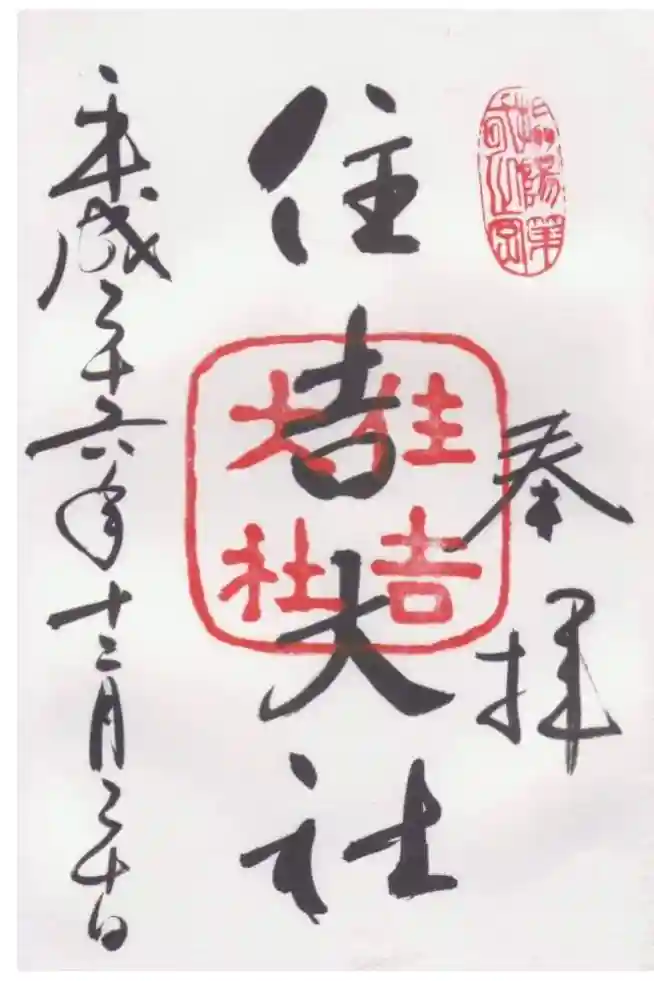 摂陽第
奉拝
住吉大社
住吉
大社
平成二十六年十二月二十日